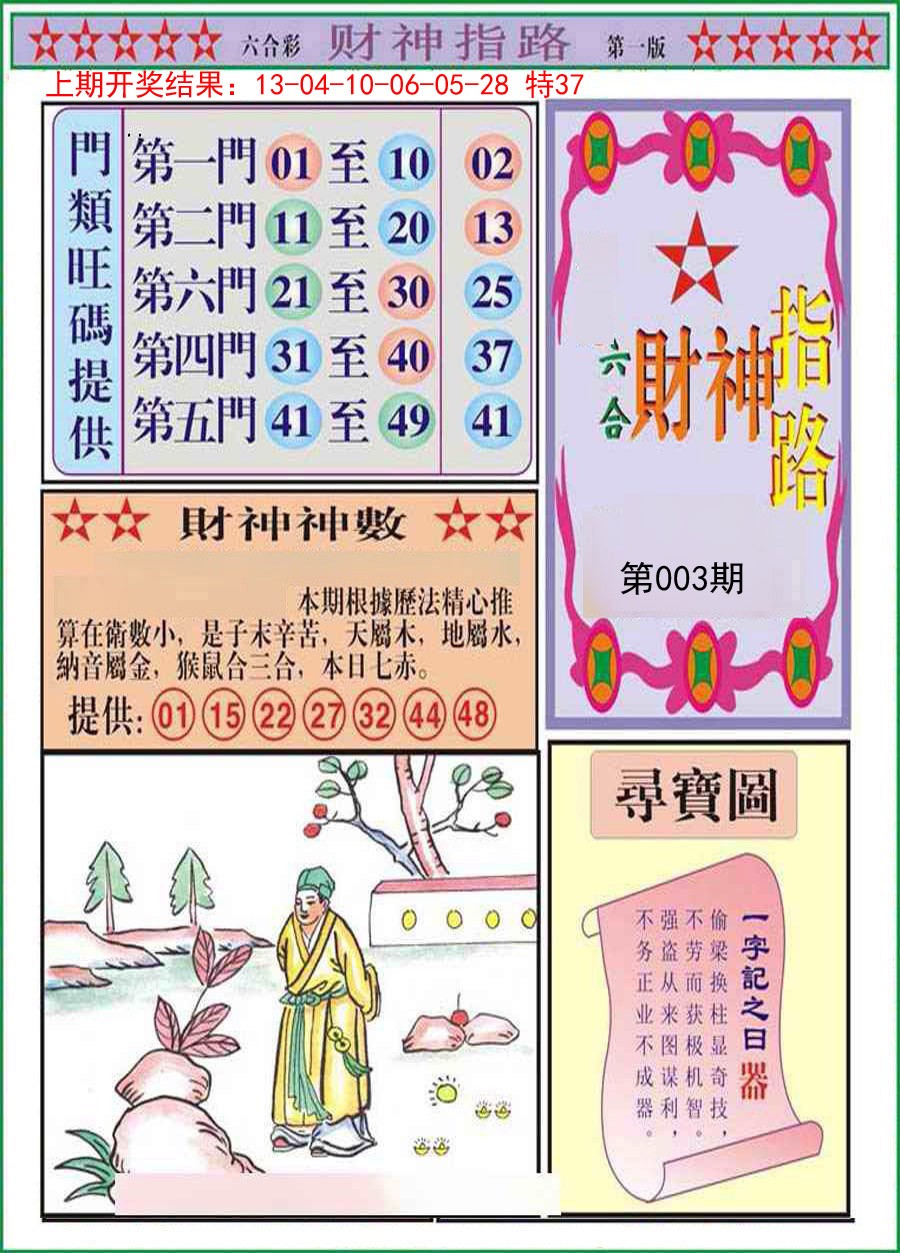 六合彩 财神指路 第一版
上期开奖结果：13-04-10-06-05-28 特37
門類旺碼提供
第一門 01 至 10 02
第二門 11 至 20 13
第六門 21 至 30 25
第四門 31 至 40 37
第五門 41 至 49 41
六合
財神
指路
第003期
財神神數
本期根據歷法精心推
算在衛數小，是子末辛苦，天屬木，地屬水，
納音屬金，猴鼠合三合，本日七赤。
提供: 01 15 22 27 32 44 48
尋寶圖
一字記之日 器
偷梁换柱显奇技，
不劳而获极机智。
强盗从来图谋利，
不务正业不成器。